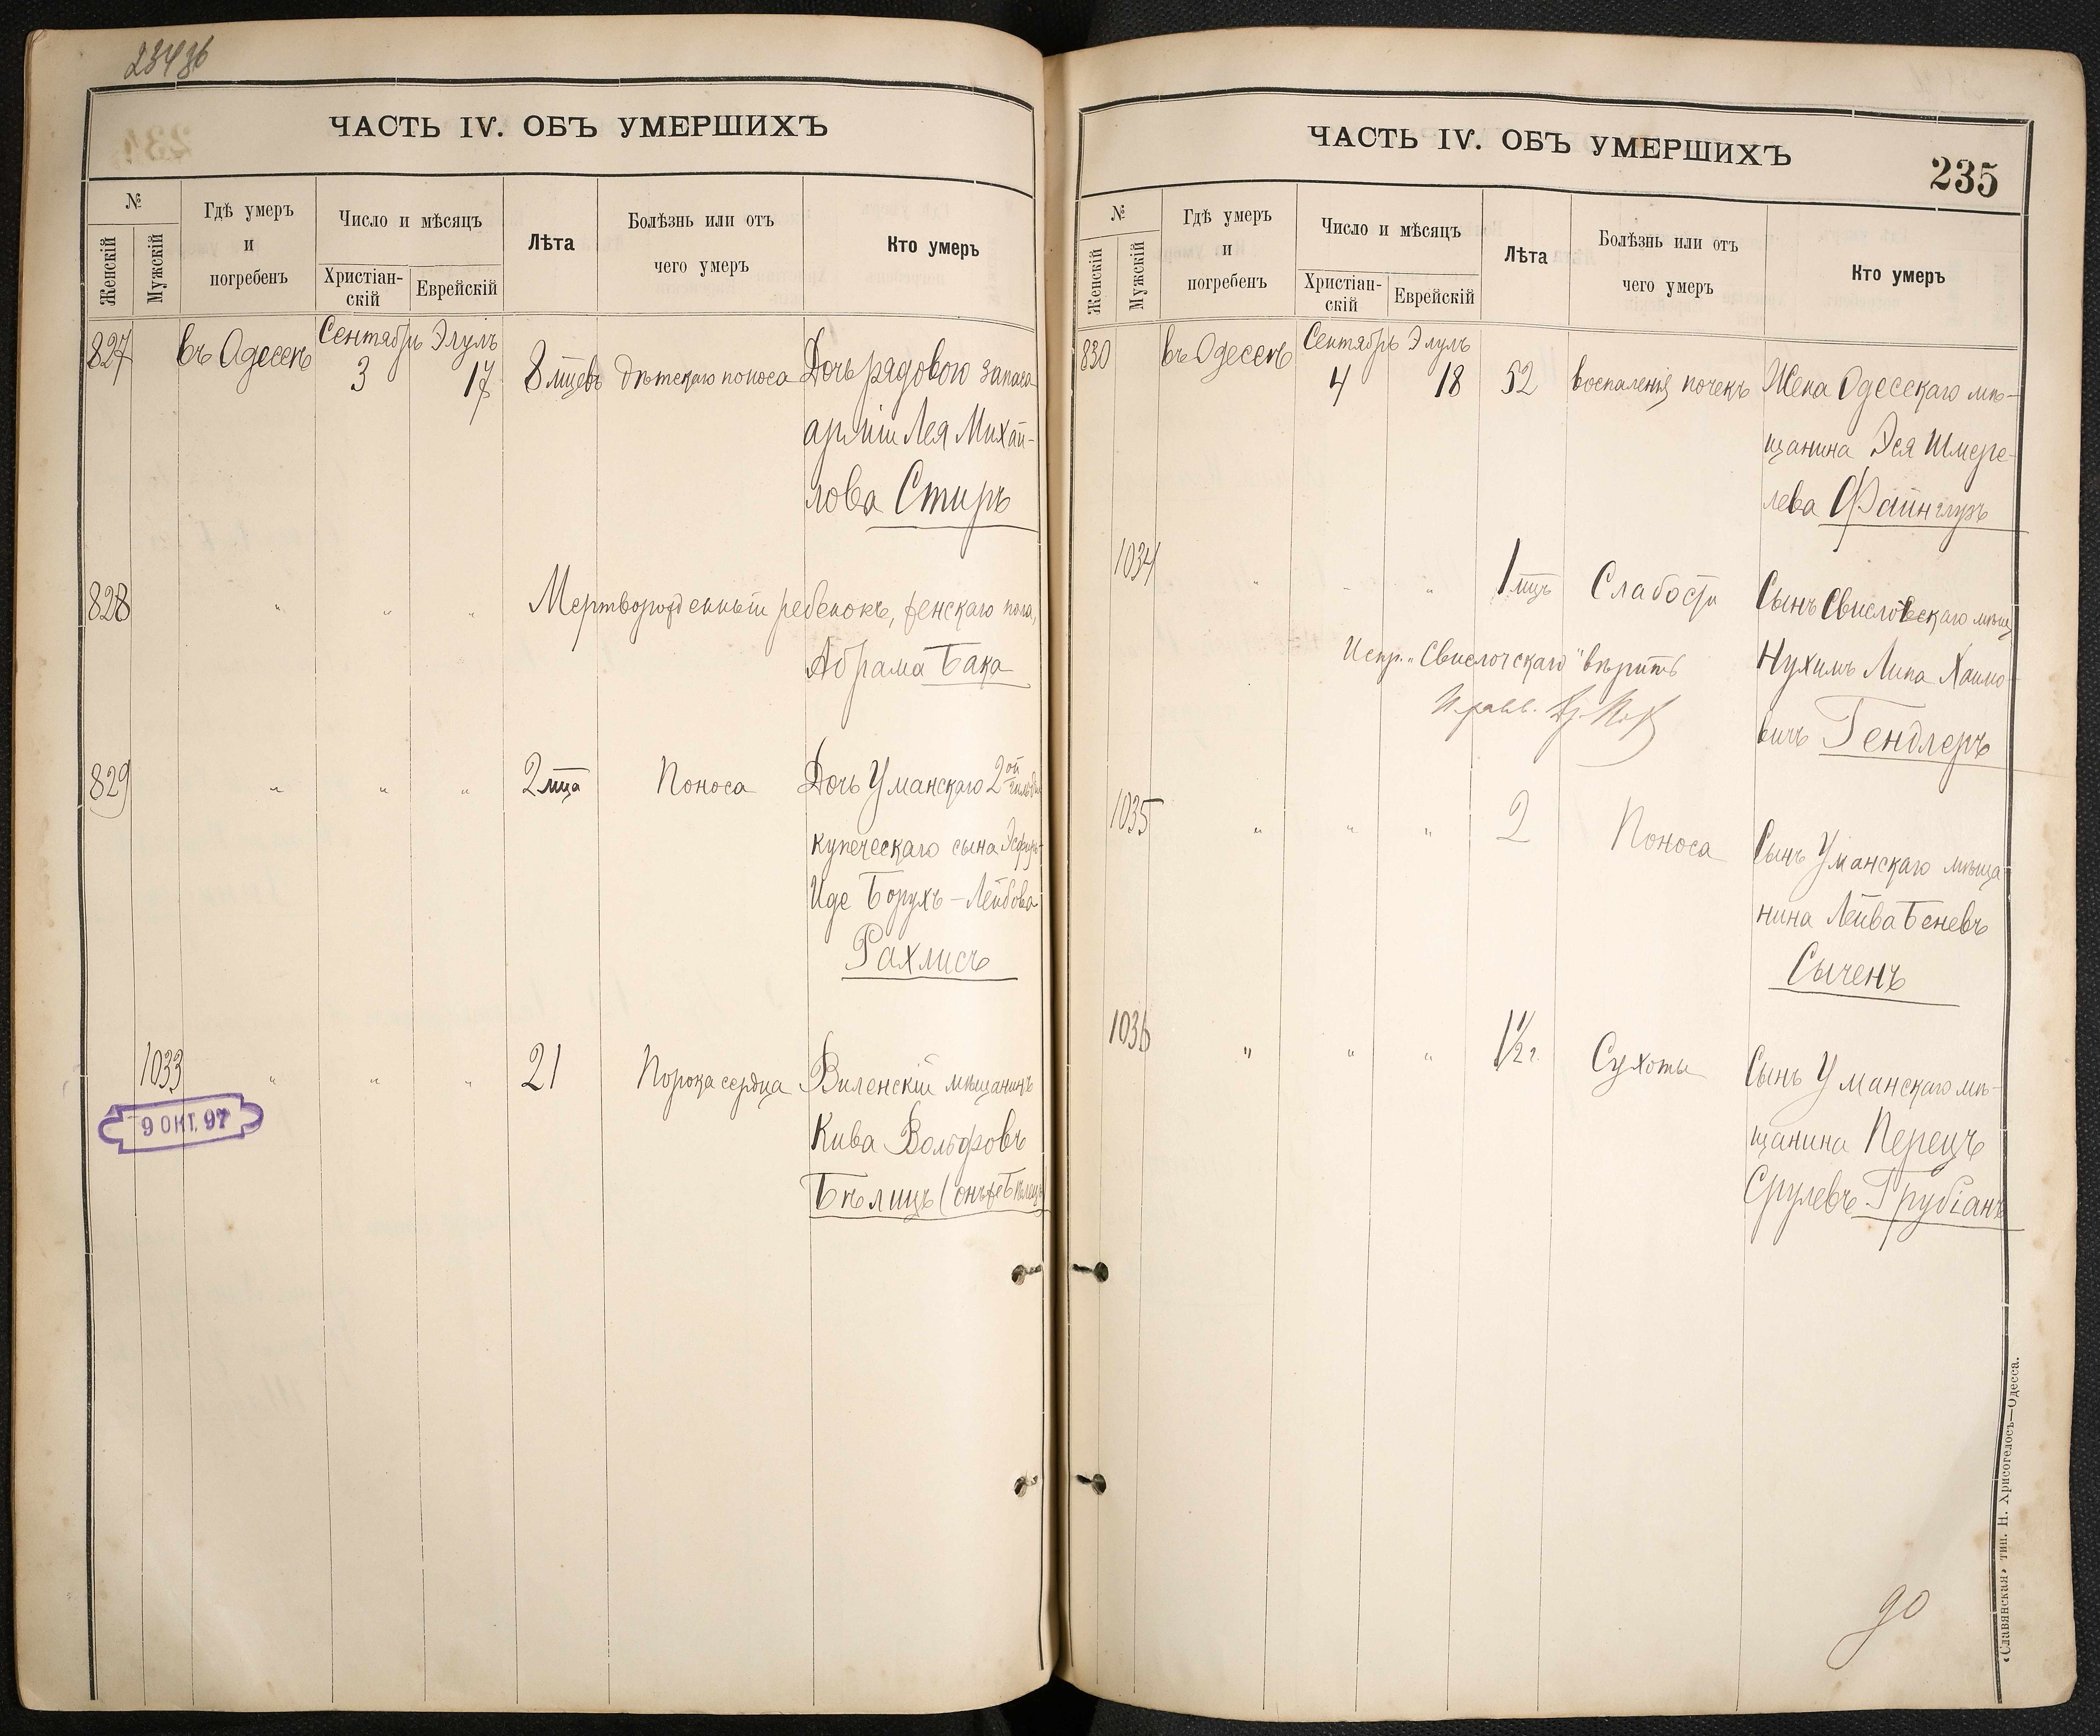 23436
ЧАСТЬ IV. ОБЪ УМЕРШИХЪ
№
Женскій
Мужскій
Гдѣ умеръ
и
погребенъ
Число и мѣсяцъ
Христіан-
скій
Еврейскій
Лѣта
Болѣзнь или отъ
чего умеръ
Кто умеръ
827 въ Одессѣ Сентябрь Элулъ
3 17 8 мцевъ дѣтскаго поноса Дочь рядового запаса
арміи Лея Михай-
лова Стиръ
828 " " " Мертворожденный ребенокъ, женскаго пола,
Абрама Бака
829 " " " 2 мца Поноса Дочь Уманскаго 2ой гильдіи
купеческаго сына Эсфирь-
Иде Борухъ-Лейбова
Рахлисъ
1033 " " " 21 Порока сердца Виленскій мѣщанинъ
Кива Вольфовъ
Бѣлицъ (онъ же Бѣлецъ)
9 ОКТ. 97
ЧАСТЬ IV. ОБЪ УМЕРШИХЪ
235
№
Женскій
Мужскій
Гдѣ умеръ
и
погребенъ
Число и мѣсяцъ
Христіан-
скій
Еврейскій
Лѣта
Болѣзнь или отъ
чего умеръ
Кто умеръ
830 въ Одессѣ Сентябрь Элулъ
4 18 52 воспаленія почекъ Жена Одесскаго мѣ-
щанина Эся Шмере-
лева Файнглузъ
1034 " " " 1 мцъ Слабости Сынъ Свислочскаго мѣщ
Испр. "Свислочскаго" вѣрить Нухимъ Липа Хаимо-
вичъ Гендлеръ
1035 " " " 2 Поноса Сынъ Уманскаго мѣща-
нина Лейва Беневъ
Сыченъ
1036 " " " 1 1/2 г. Сухоты Сынъ Уманскаго мѣ-
щанина Перецъ
Срулевъ Грубіанъ
90
«Славянская» тип. Н. Хрисогелосъ—Одесса.